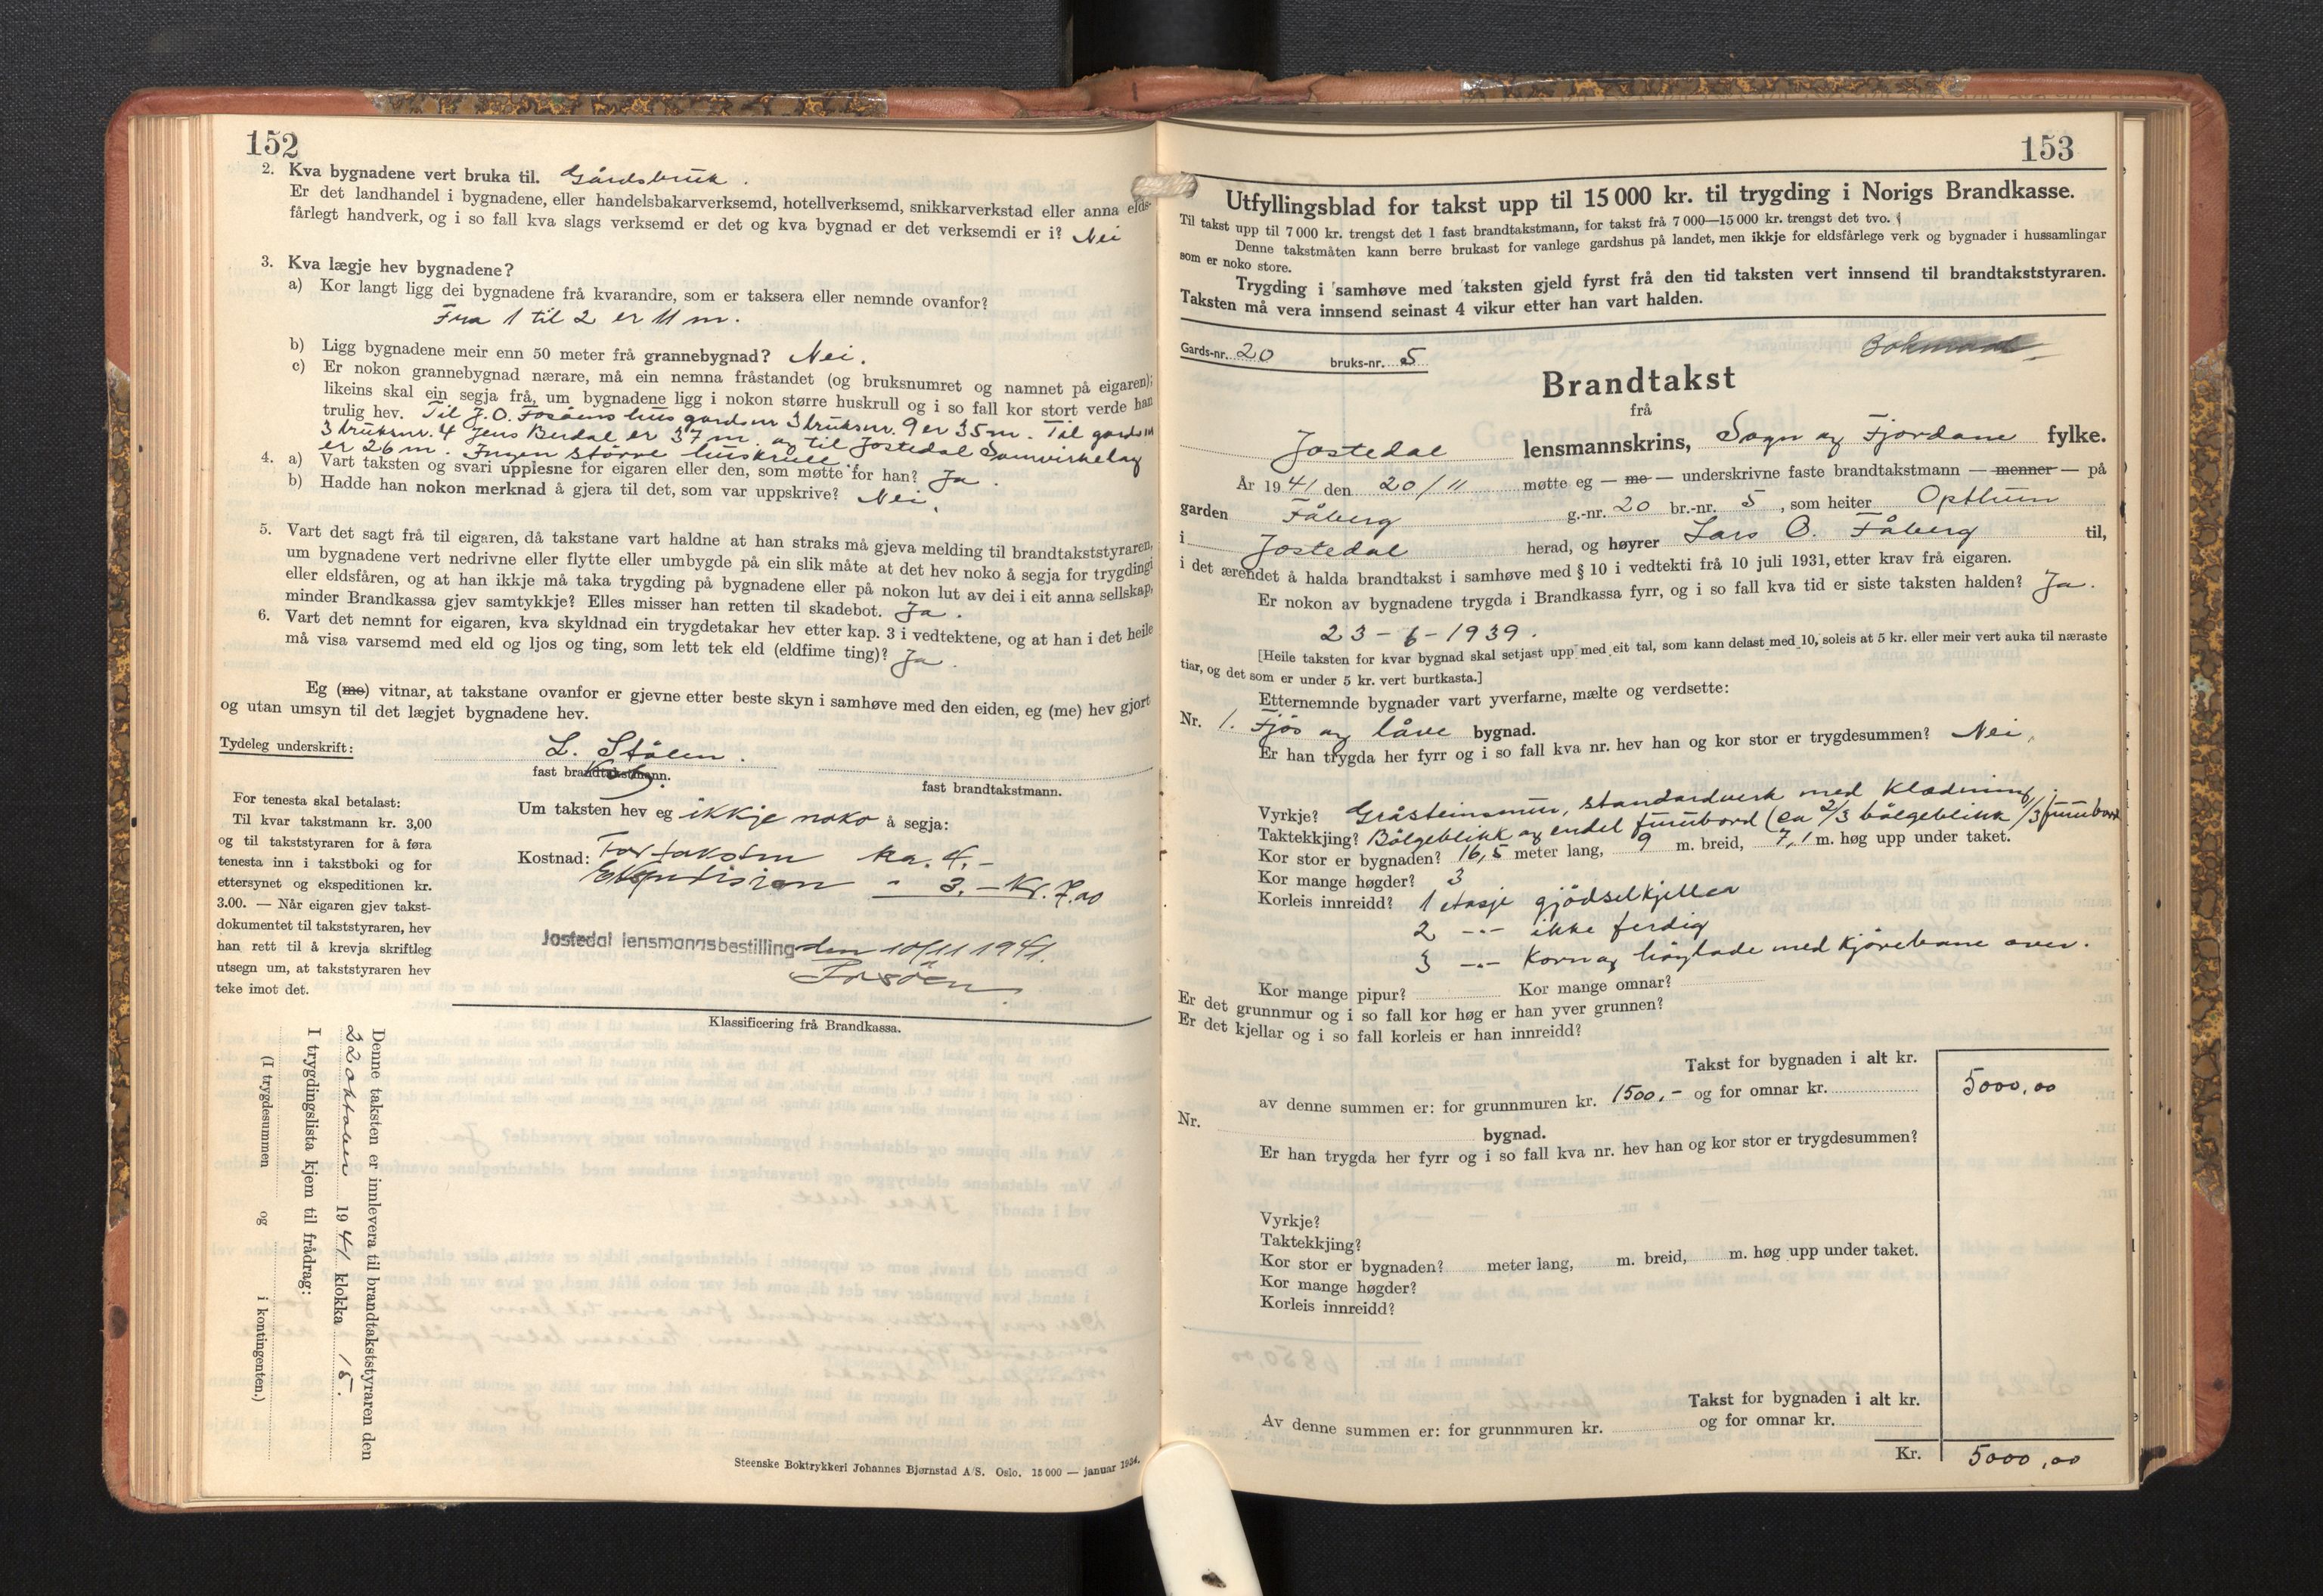 152
2. Kva bygnadene vert bruka til. Gårdsbruk.
Er det landhandel i bygnadene, eller handelsbakarverksemd, hotellverksemd, snikkarverkstad eller anna elds-
fårlegt handverk, og i so fall kva slags verksemd er det og kva bygnad er det verksemdi er i? Nei
3. Kva lægje hev bygnadene?
a) Kor langt ligg dei bygnadene frå kvarandre, som er taksera eller nemnde ovanfor?
Fra 1 til 2 er 11 m.
b) Ligg bygnadene meir enn 50 meter frå grannebygnad? Nei.
c) Er nokon grannebygnad nærare, må ein nemna fråstandet (og bruksnumret og namnet på eigaren);
likeins skal ein segja frå, um bygnadene ligg i nokon større huskrull og i so fall kor stort verde han
trulig hev. Til J. O. Fosåens hus gardsnr 3 bruksnr. 9 er 35 m. Til gardsnr
3 bruksnr. 4 Jens Berdal er 37 m. og til Jostedal Samvirkelag
er 26 m. Ingen större huskrull
4. a) Vart taksten og svari upplesne for eigaren eller den, som møtte for han? Ja.
b) Hadde han nokon merknad å gjera til det, som var uppskrive? Nei.
5. Vart det sagt frå til eigaren, då takstane vart haldne at han straks må gjeva melding til brandtakststyraren,
um bygnadene vert nedrivne eller flytte eller umbygde på ein slik måte at det hev noko å segja for trygdingi
eller eldsfåren, og at han ikkje må taka trygding på bygnadene eller på nokon lut av dei i eit anna sellskap,
minder Brandkassa gjev samtykkje? Elles misser han retten til skadebot. Ja.
6. Vart det nemnt for eigaren, kva skyldnad ein trygdetakar hev etter kap. 3 i vedtektene, og at han i det heile
må visa varsemd med eld og ljos og ting, som lett tek eld (eldfime ting)? Ja.
Eg (me) vitnar, at takstane ovanfor er gjevne etter beste skyn i samhøve med den eiden, eg (me) hev gjort
og utan umsyn til det lægjet bygnadene hev.
Tydeleg underskrift: L. Stålen.
fast brandtakstmann. fast brandtakstmann.
For tenesta skal betalast:
Til kvar takstmann kr. 3,00
og til takststyraren for å føra
tenesta inn i takstboki og for
ettersynet og ekspeditionen kr.
3.00. — Når eigaren gjev takst-
dokumentet til takststyraren, hev
han rett til å krevja skriftleg
utsegn um, at takststyraren hev
teke imot det.
Um taksten hev eg ikkje noko å segja:
Kostnad: For taksten kr. 4.-
Ekspedision - 3.- Kr. 7.00
Jostedal lensmannsbestilling den 10/11 1941.
Fosåen
Klassificering frå Brandkassa.
Denne taksten er innlevera til brandtakststyraren den
22 oktober 1941 klokka 15.
I trygdingslista kjem til frådrag:
(I trygdesummen og i kontingenten.)
Steenske Boktrykkeri Johannes Bjørnstad A/S. Oslo. 15 000 — januar 1934.
153
Utfyllingsblad for takst upp til 15 000 kr. til trygding i Norigs Brandkasse.
Til takst upp til 7 000 kr. trengst det 1 fast brandtakstmann, for takst frå 7 000—15 000 kr. trengst det tvo.
Denne takstmåten kann berre brukast for vanlege gardshus på landet, men ikkje for eldsfårlege verk og bygnader i hussamlingar
som er noko store.
Trygding i samhøve med taksten gjeld fyrst frå den tid taksten vert innsend til brandtakststyraren.
Taksten må vera innsend seinast 4 vikur etter han vart halden.
Gards-nr. 20 bruks-nr. 5
Brandtakst
frå
Jostedal lensmannskrins, Sogn og Fjordane fylke.
År 1941 den 20/11 møtte eg — me — underskrivne faste brandtakstmann — menner — på
garden Fåberg g.-nr. 20 br.-nr. 5, som heiter Opthun
i Jostedal herad, og høyrer Lars O. Fåberg til,
i det ærendet å halda brandtakst i samhøve med § 10 i vedtekti frå 10 juli 1931, etter krav frå eigaren.
Er nokon av bygnadene trygda i Brandkassa fyrr, og i so fall kva tid er siste taksten halden? Ja.
23-6-1939.
[Heile taksten for kvar bygnad skal setjast upp med eit tal, som kann delast med 10, soleis at 5 kr. eller meir vert auka til næraste
tiar, og det som er under 5 kr. vert burtkasta.]
Etternemnde bygnader vart yverfarne, mælte og verdsette:
Nr. 1. Fjös og låve bygnad.
Er han trygda her fyrr og i so fall kva nr. hev han og kor stor er trygdesummen? Nei.
Vyrkje? Gråsteinsmur, standardverk med Klædning.
Taktekkjing? Bölgeblikk og endel furubord (ca 2/3 bölgeblikk 1/3 furubord
Kor stor er bygnaden? 16,5 meter lang, 9 m. breid, 7,1 m. høg upp under taket.
Kor mange høgder? 3
Korleis innreidd? 1 etasje gjödselkjeller
2 -"- ikke ferdig
3 -"- Korn og höylade med kjörebane over.
Kor mange pipur? Kor mange omnar?
Er det grunnmur og i so fall kor høg er han yver grunnen?
Er det kjellar og i so fall korleis er han innreidd?
Takst for bygnaden i alt kr. 5000,00
av denne summen er: for grunnmuren kr. 1500,- og for omnar kr.
Nr. bygnad.
Er han trygda her fyrr og i so fall kva nr. hev han og kor stor er trygdesummen?
Vyrkje?
Taktekkjing?
Kor stor er bygnaden? meter lang, m. breid, m. høg upp under taket.
Kor mange høgder?
Korleis innreidd?
Takst for bygnaden i alt kr.
Av denne summen er: for grunnmuren kr. og for omnar kr.
Kr. 5000,00